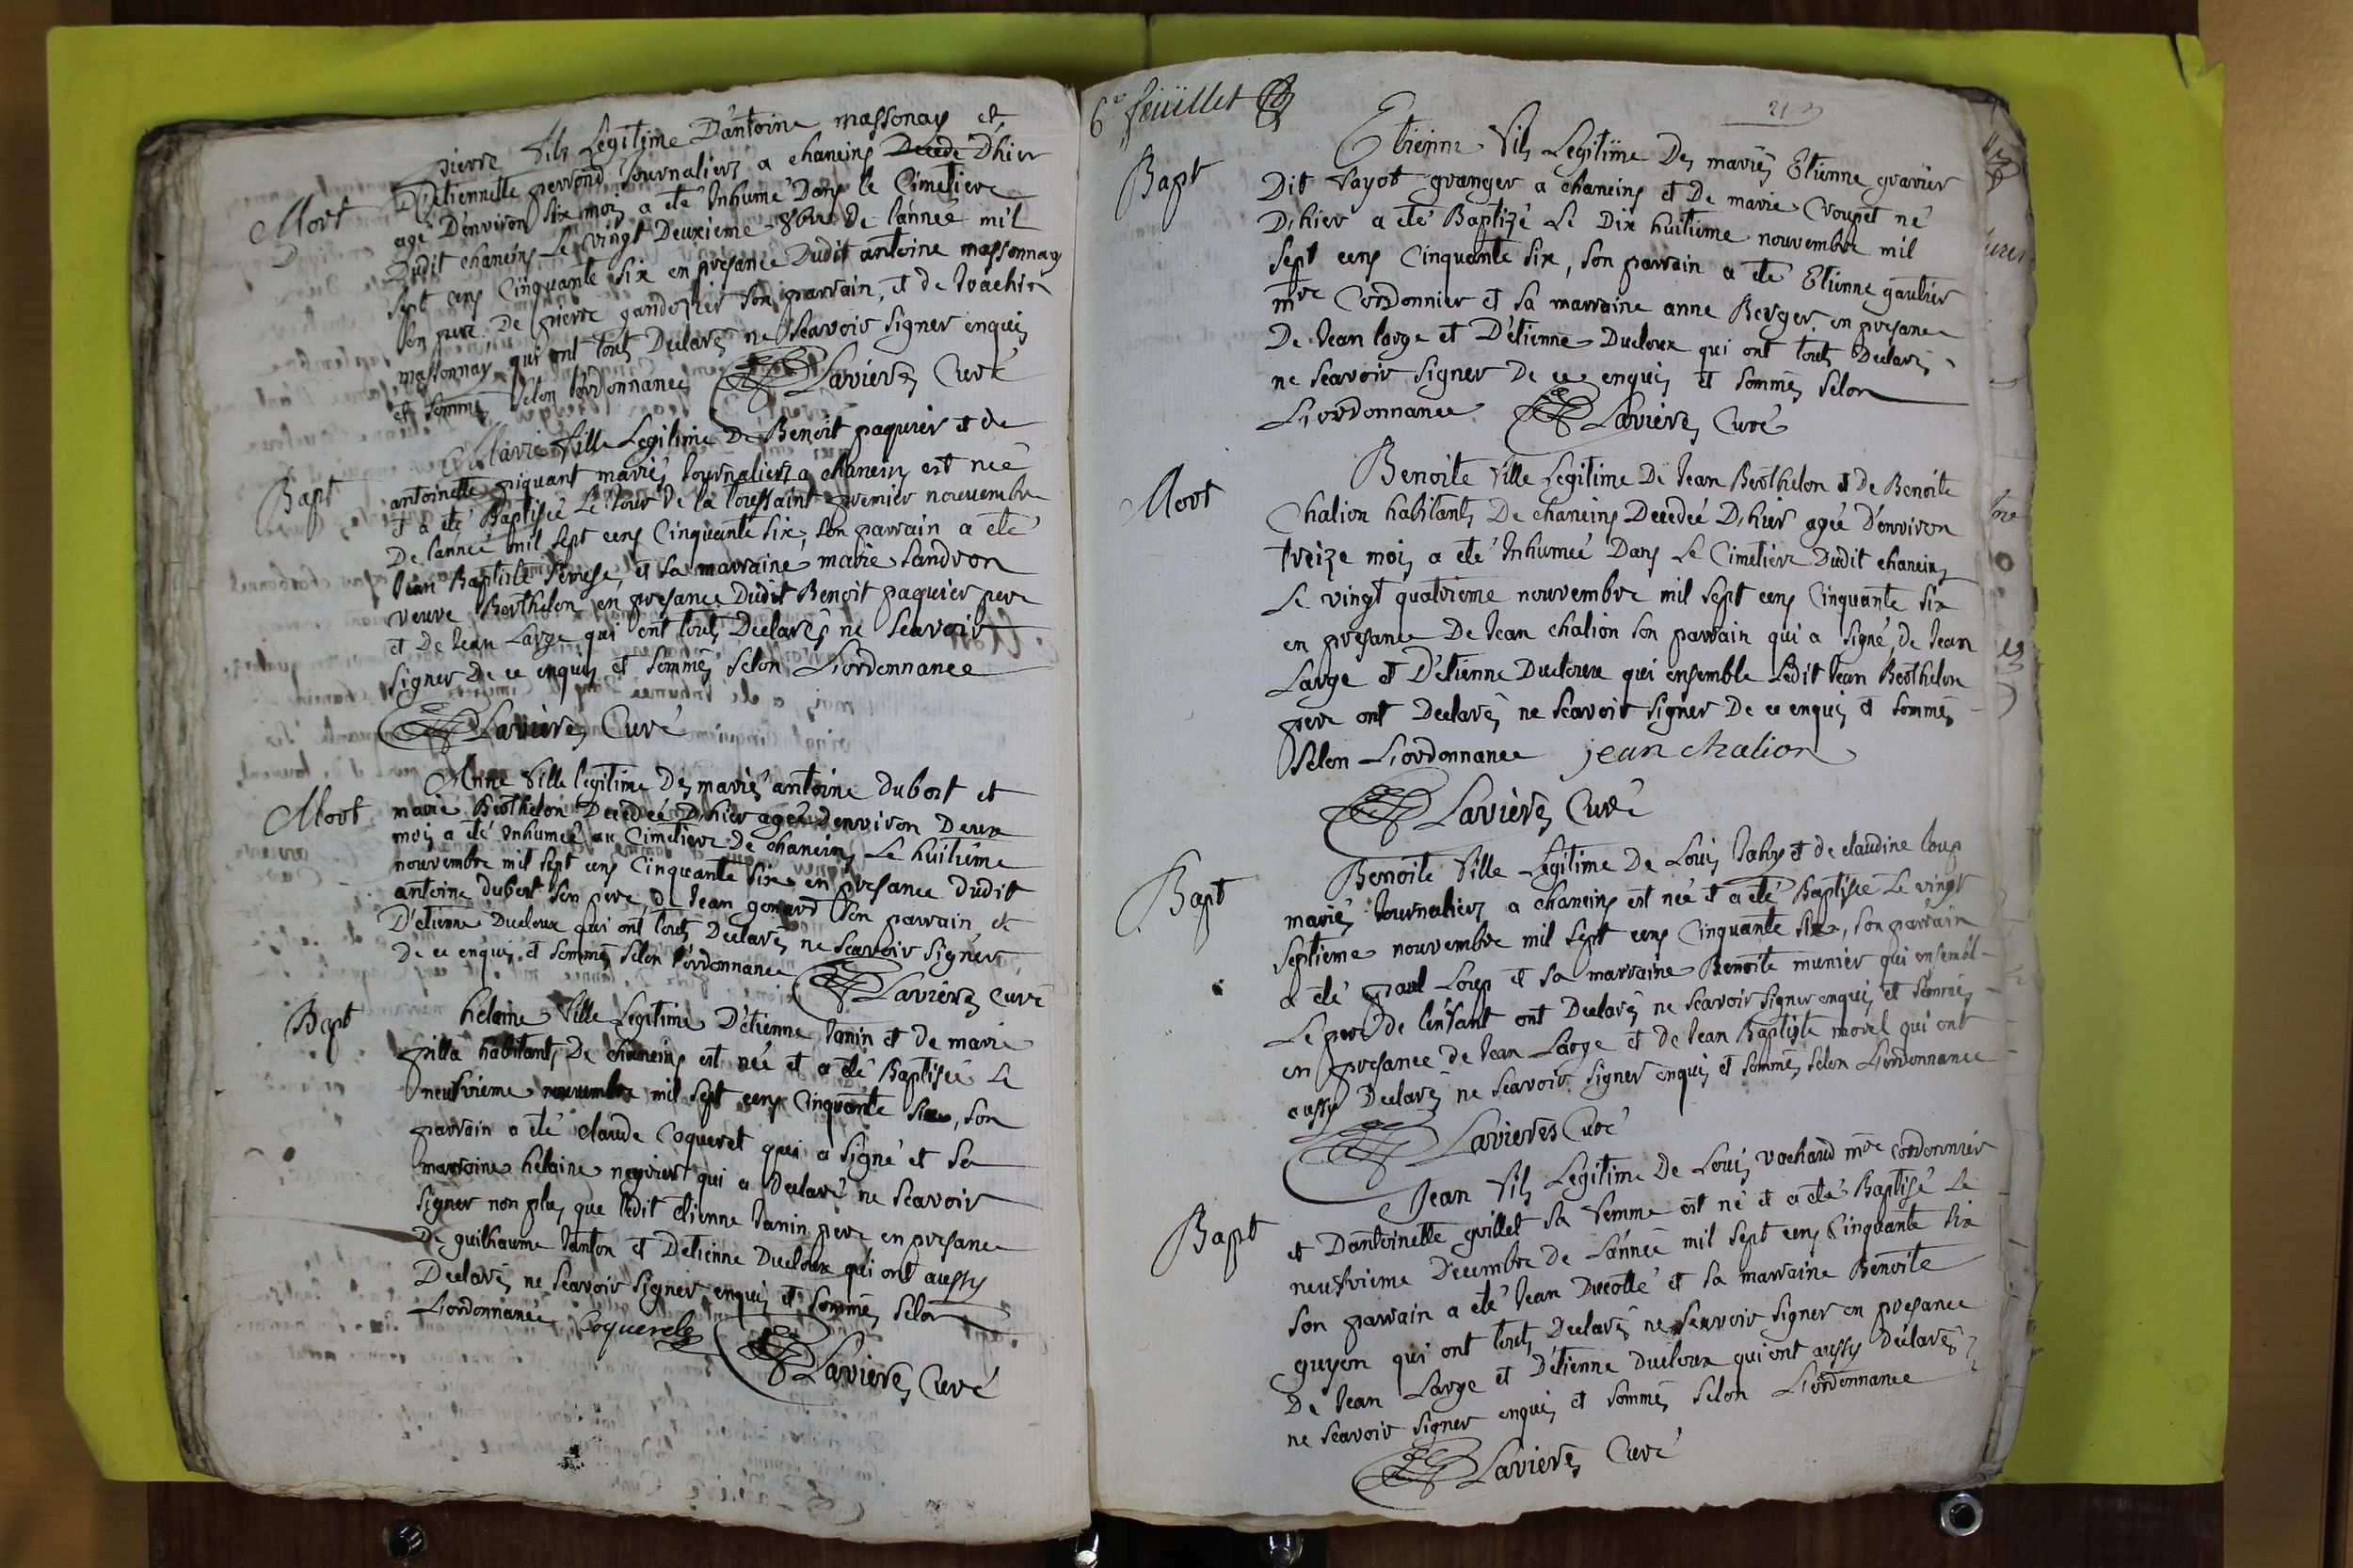 Mort
pierre fils Legitime D'antoine massonay et
D'etiennette perrond Journaliers a chaneins Decedé D'hier
agé D'environ six mois a eté Inhumé Dans le Cimetiere
Dudit chaneins Le vingt Deuxieme 8bre de l'année mil
sept cens Cinquante six en presance Dudit antoine massonnay
son pere De pierre gandozier son parrain, et de Joachin
massonnay qui ont touts Declarés ne Scavoir signer enquis
et sommés selon L'ordonnance Lavieres Curé
Bapt
Marie fille Legitime De Benoit paquier et de
antoinette piquant mariés Journaliers a chaneins est neé
et a eté Baptisée Le Jour de la toussaint premier nouvembre
De l'année mil sept cens Cinquante six, son parrain a eté
Jean Baptiste, et sa marraine marie Sandron
veuve Berthelon en presance Dudit Benoit paquier pere
et De Jean Large qui ont touts Declarés ne Scavoir
signer De ce enquis et sommés selon L'ordonnance
Lavieres Curé
Mort
Anne fille legitime Des mariés antoine dubost et
marie Berthelon Decedée D'hier ageé D'environ Deux
mois a eté Inhumeé au Cimetiere De chaneins Le huitiéme
nouvembre mil sept cens Cinquante six en presance dudit
antoine dubost son pere, de Jean gonard son parrain et
D'etienne Ducloux qui ont touts Declarés ne Scavoir signer
De ce enquis et sommés selon L'ordonnance
Lavieres Curé
Bapt
helaine fille Legitime D'etienne Janin et de marie
pilla habitants De chaneins est née et a eté Baptisée Le
neufvieme nouvembre mil sept cens Cinquante six, son
parrain a eté claude Coqueret qui a signé et sa
marraine helaine qui a Declaré ne Scavoir
signer non plus que ledit etienne Janin pere en presance
De guilhaume Janton et D'etienne Ducloux qui ont aussy
Declarés ne Scavoir signer enquis et sommés selon
L'ordonnance Coquerelz
Lavieres Curé
6e feüillet
213
Bapt
Etienne fils Legitime Des mariés Etienne gravier
Dit Payot granger a chaneins et De marie Croupet né
D'hier a eté Baptizé Le Dix huitieme nouvembre mil
sept cens Cinquante six, son parrain a eté Etienne gautier
mre Cordonnier et sa marraine anne Berger en presance
De Jean large et D'etienne Ducloux qui ont touts Declarés
ne Scavoir signer De ce enquis et sommés selon
L'ordonnance Lavieres Curé
Mort
Benoite fille Legitime De Jean Berthelon et de Benoite
Chalion habitants De chaneins Decedeé D'hier ageé D'environ
treize mois a eté Inhumeé Dans Le Cimetiere Dudit chaneins
Le vingt quatrieme nouvembre mil sept cens Cinquante six
en presance De Jean chalion son parrain qui a signé, de Jean
Large et D'etienne Ducloux qui ensemble Ledit Jean Berthelon
pere ont Declarés ne Scavoir signer De ce enquis et sommés
selon L'ordonnance jean chalion
Lavieres Curé
Bapt
Benoite fille Legitime De Louis Jahy et de claudine loup
mariés Journaliers a chaneins est neé et a eté Baptiseé Le vingt
septieme nouvembre mil sept cens Cinquante six, son parrain
a eté paul Loup et sa marraine Benoite munier qui ensembl-
Le pere de l'enfant ont Declarés ne Scavoir signer enquis et sommés
en presance de Jean Large et de Jean Baptiste morel qui ont
aussy Declarés ne Scavoir signer enquis et sommés selon L'ordonnance
Lavieres Curé
Bapt
Jean fils Legitime De Louis vachard mre cordonnier
et D'antoinette grillet sa femme est né et a eté Baptisé Le
neufvieme Decembre de L'année mil sept cens Cinquante six
son parrain a eté Jean Ducotté et sa marraine Benoite
guyon qui ont touts Declarés ne Scavoir signer en presance
De Jean Large et D'etienne Ducloux qui ont aussy Declarés
ne Scavoir signer enquis et sommés selon L'ordonnance
Lavieres Curé